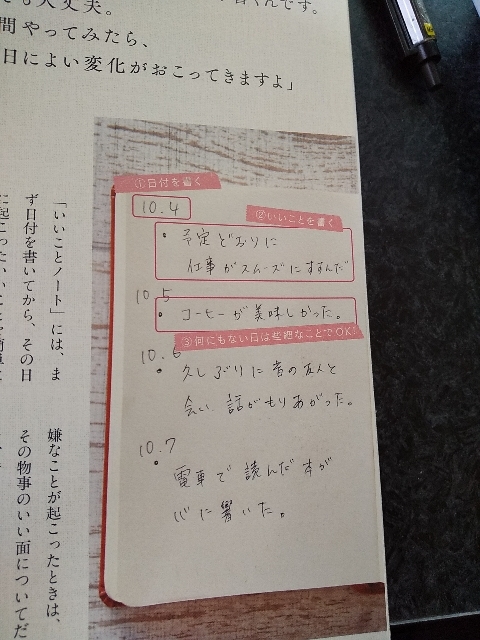 大丈夫。
間やってみたら、
日によい変化がおこってきますよ」
①日付を書く
10.4
②いいことを書く
・予定どおりに
仕事がスムーズにすすんだ
10.5
・コーヒーが美味しかった。
③何にもない日は些細なことでOK!
10.6
・久しぶりに昔の友人と
会い、話がもりあがった。
10.7
・電車で読んだ本が
心に響いた。
「いいことノート」には、ま
ず日付を書いてから、その日
嫌なことが起こったときは、
その物事のいい面についてだ